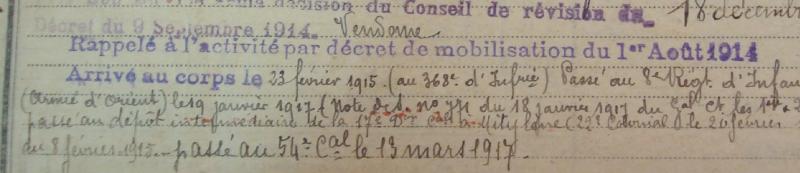 décision du Conseil de révision du 18 décemb
Décret du 9 Septembre 1914. Vendome
Rappelé à l'activité par décret de mobilisation du 1er Août 1914
Arrivé au corps le 23 février 1915 (au 368e d'Infrie) Passé au 8e Régt. d'Infan
(Armée d'Orient) le 19 janvier 1917 (Note du 18 janvier 1917 du Gal Ct les
passé au dépôt intermédiaire de la 17e Don Cale à Mitylène (22e Colonial) le 20 février
du 8 février 1915. passé au 54e Cal le 13 mars 1917.